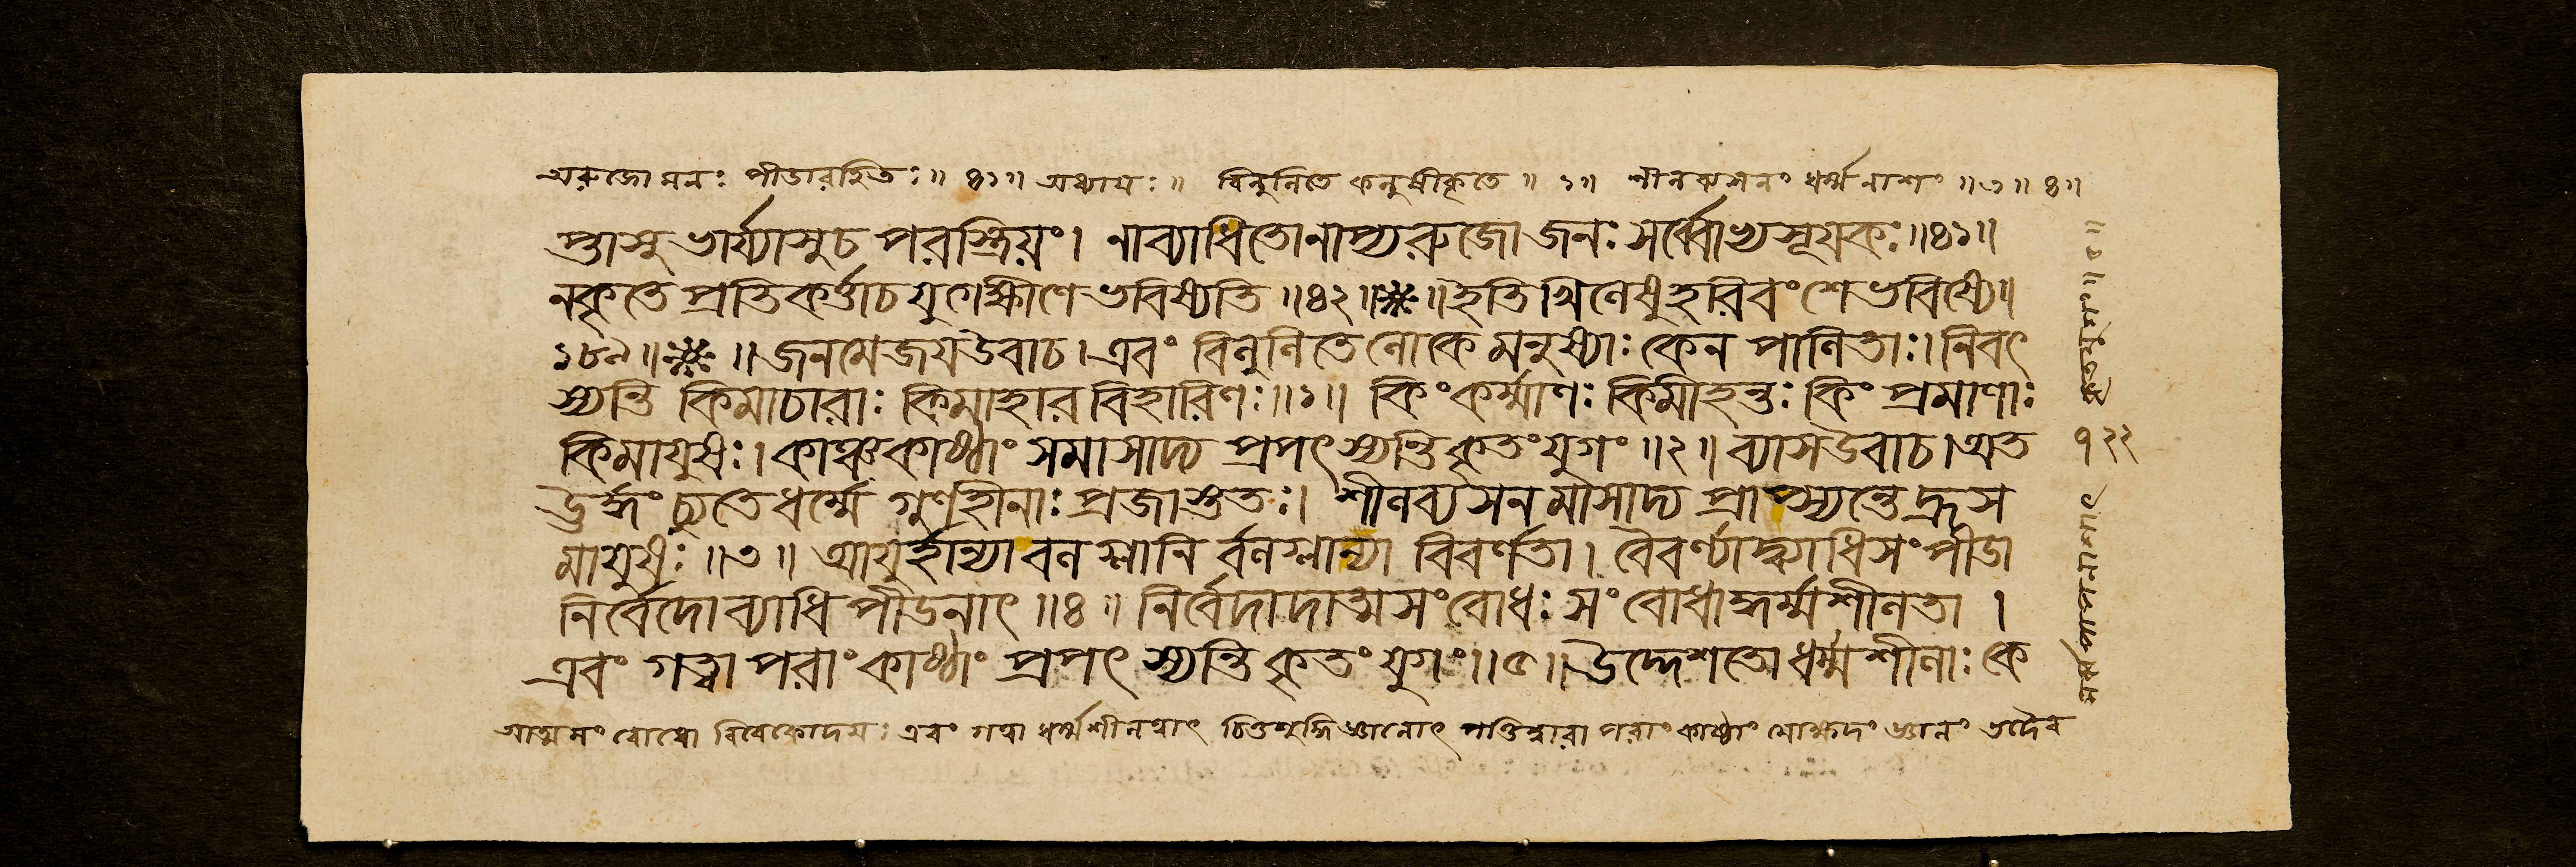 অরুজো মনঃ পীডারহিতঃ॥ ৪১॥ অথাযঃ॥ বিলুলিতে কলুষীকৃতে॥ ১॥ শীলব্যসনং ধর্ম্মনাশং॥৩॥ ৪॥
প্তাসু ভার্য্যাসু চ পরস্ত্রিয়ং। নাব্যাধিতো নাপ্যরুজো জনঃ সর্ব্বোভ্যসূযকঃ॥৪১॥
ন কৃতে প্রতিকর্ত্তা চ যুগে ক্ষীণে ভবিষ্যতি॥৪২॥❋॥ইতি খিলেষু হরিবংশে ভবিষ্যে॥
১৮৯॥❋॥ জনমেজয উবাচ। এবং বিলুলিতে লোকে মনুষ্যাঃ কেন পালিতাঃ। নিবৎ
স্যন্তি কিমাচারাঃ কিমাহারবিহারিণঃ॥১॥ কিংকর্ম্মাণঃ কিমীহন্তঃ কিং প্রমাণাঃ
কিমাযুষঃ। কাঞ্চ কাষ্ঠাং সমাসাদ্য প্রপৎস্যন্তি কৃতং যুগং॥২॥ ব্যাস উবাচ। অত
ঊর্দ্ধং চ্যুতে ধর্ম্মে গুণহীনাঃ প্রজাস্ততঃ। শীলব্যসনমাসাদ্য প্রাপ্স্যন্তে হ্রাস
মাযুষঃ॥৩॥ আযুর্হান্যা বলগ্লানির্বলগ্লান্যা বিবর্ণতা। বৈবর্ণ্যাদ্ব্যাধিসংপীডা
নির্বেদো ব্যাধিপীডনাৎ॥৪॥ নির্বেদাদাত্মসংবোধঃ সংবোধাদ্ধর্ম্মশীলতা।
এবং গত্বা পরাং কাষ্ঠাং প্রপৎস্যন্তি কৃতং যুগং॥৫॥ উদ্দেশতো ধর্ম্মশীলাঃ কে
আত্মসংবোধো বিবেকোদযঃ এবং গত্বা ধর্ম্মশীলত্বাৎ চিত্তশুদ্ধি পরাং কাষ্ঠাং মোক্ষদং জ্ঞানং তদৈব
১২২